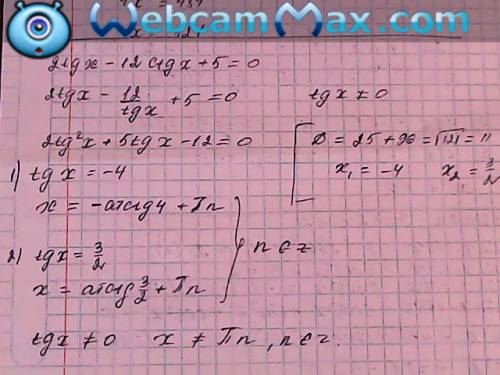 WebcamMax.com
2tgx - 12ctgx + 5 = 0
2tgx - 12/tgx + 5 = 0 tgx ≠ 0
2tg²x + 5tgx - 12 = 0
D = 25 + 96 = √121 = 11
x₁ = -4 x₂ = 3/2
1) tgx = -4
x = -arctg4 + Πn
2) tgx = 3/2
x = arctg 3/2 + Πn
n ∈ z
tgx ≠ 0 x ≠ Πn, n ∈ z.